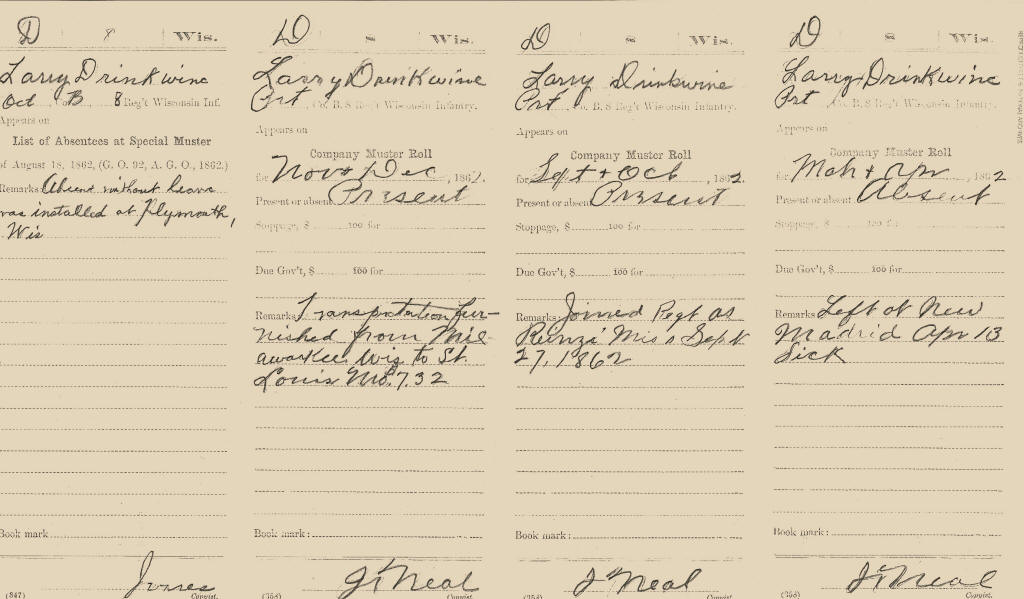 D 8 Wis.
Larry Drinkwine
Oct Co. B, 8 Reg't Wisconsin Inf.
Appears on
List of Absentees at Special Muster
of August 18, 1862, (G. O. 92, A. G. O., 1862.)
Remarks: Absent without leave
was installed at Plymouth,
Wis
Book mark
Jones
(347) Copyist.
D 8 Wis.
Larry Drinkwine
Prt, Co. B, 8 Reg't Wisconsin Infantry.
Appears on
Company Muster Roll
for Nov + Dec, 1862.
Present or absent Present
Stoppage, $ 100 for
Due Gov't, $ 100 for
Remarks: Transportation fur-
nished from Mil-
awarkee Wis to St.
Louis Mo. $7.32
Book mark:
J. O'Neal
(358) Copyist.
D 8 Wis.
Larry Drinkwine
Prt, Co. B, 8 Reg't Wisconsin Infantry.
Appears on
Company Muster Roll
for Sept + Oct, 1862.
Present or absent Present
Stoppage, $ 100 for
Due Gov't, $ 100 for
Remarks: Joined Regt at
Rienzi Miss Sept
27, 1862
Book mark:
J. O'Neal
(358) Copyist.
D 8 Wis.
Larry Drinkwine
Prt, Co. B, 8 Reg't Wisconsin Infantry.
Appears on
Company Muster Roll
for Mch + Apr, 1862
Present or absent Absent
Stoppage, $ 100 for
Due Gov't, $ 100 for
Remarks: Left at New
Madrid Apr 13
Sick
Book mark:
J. O'Neal
(358) Copyist.